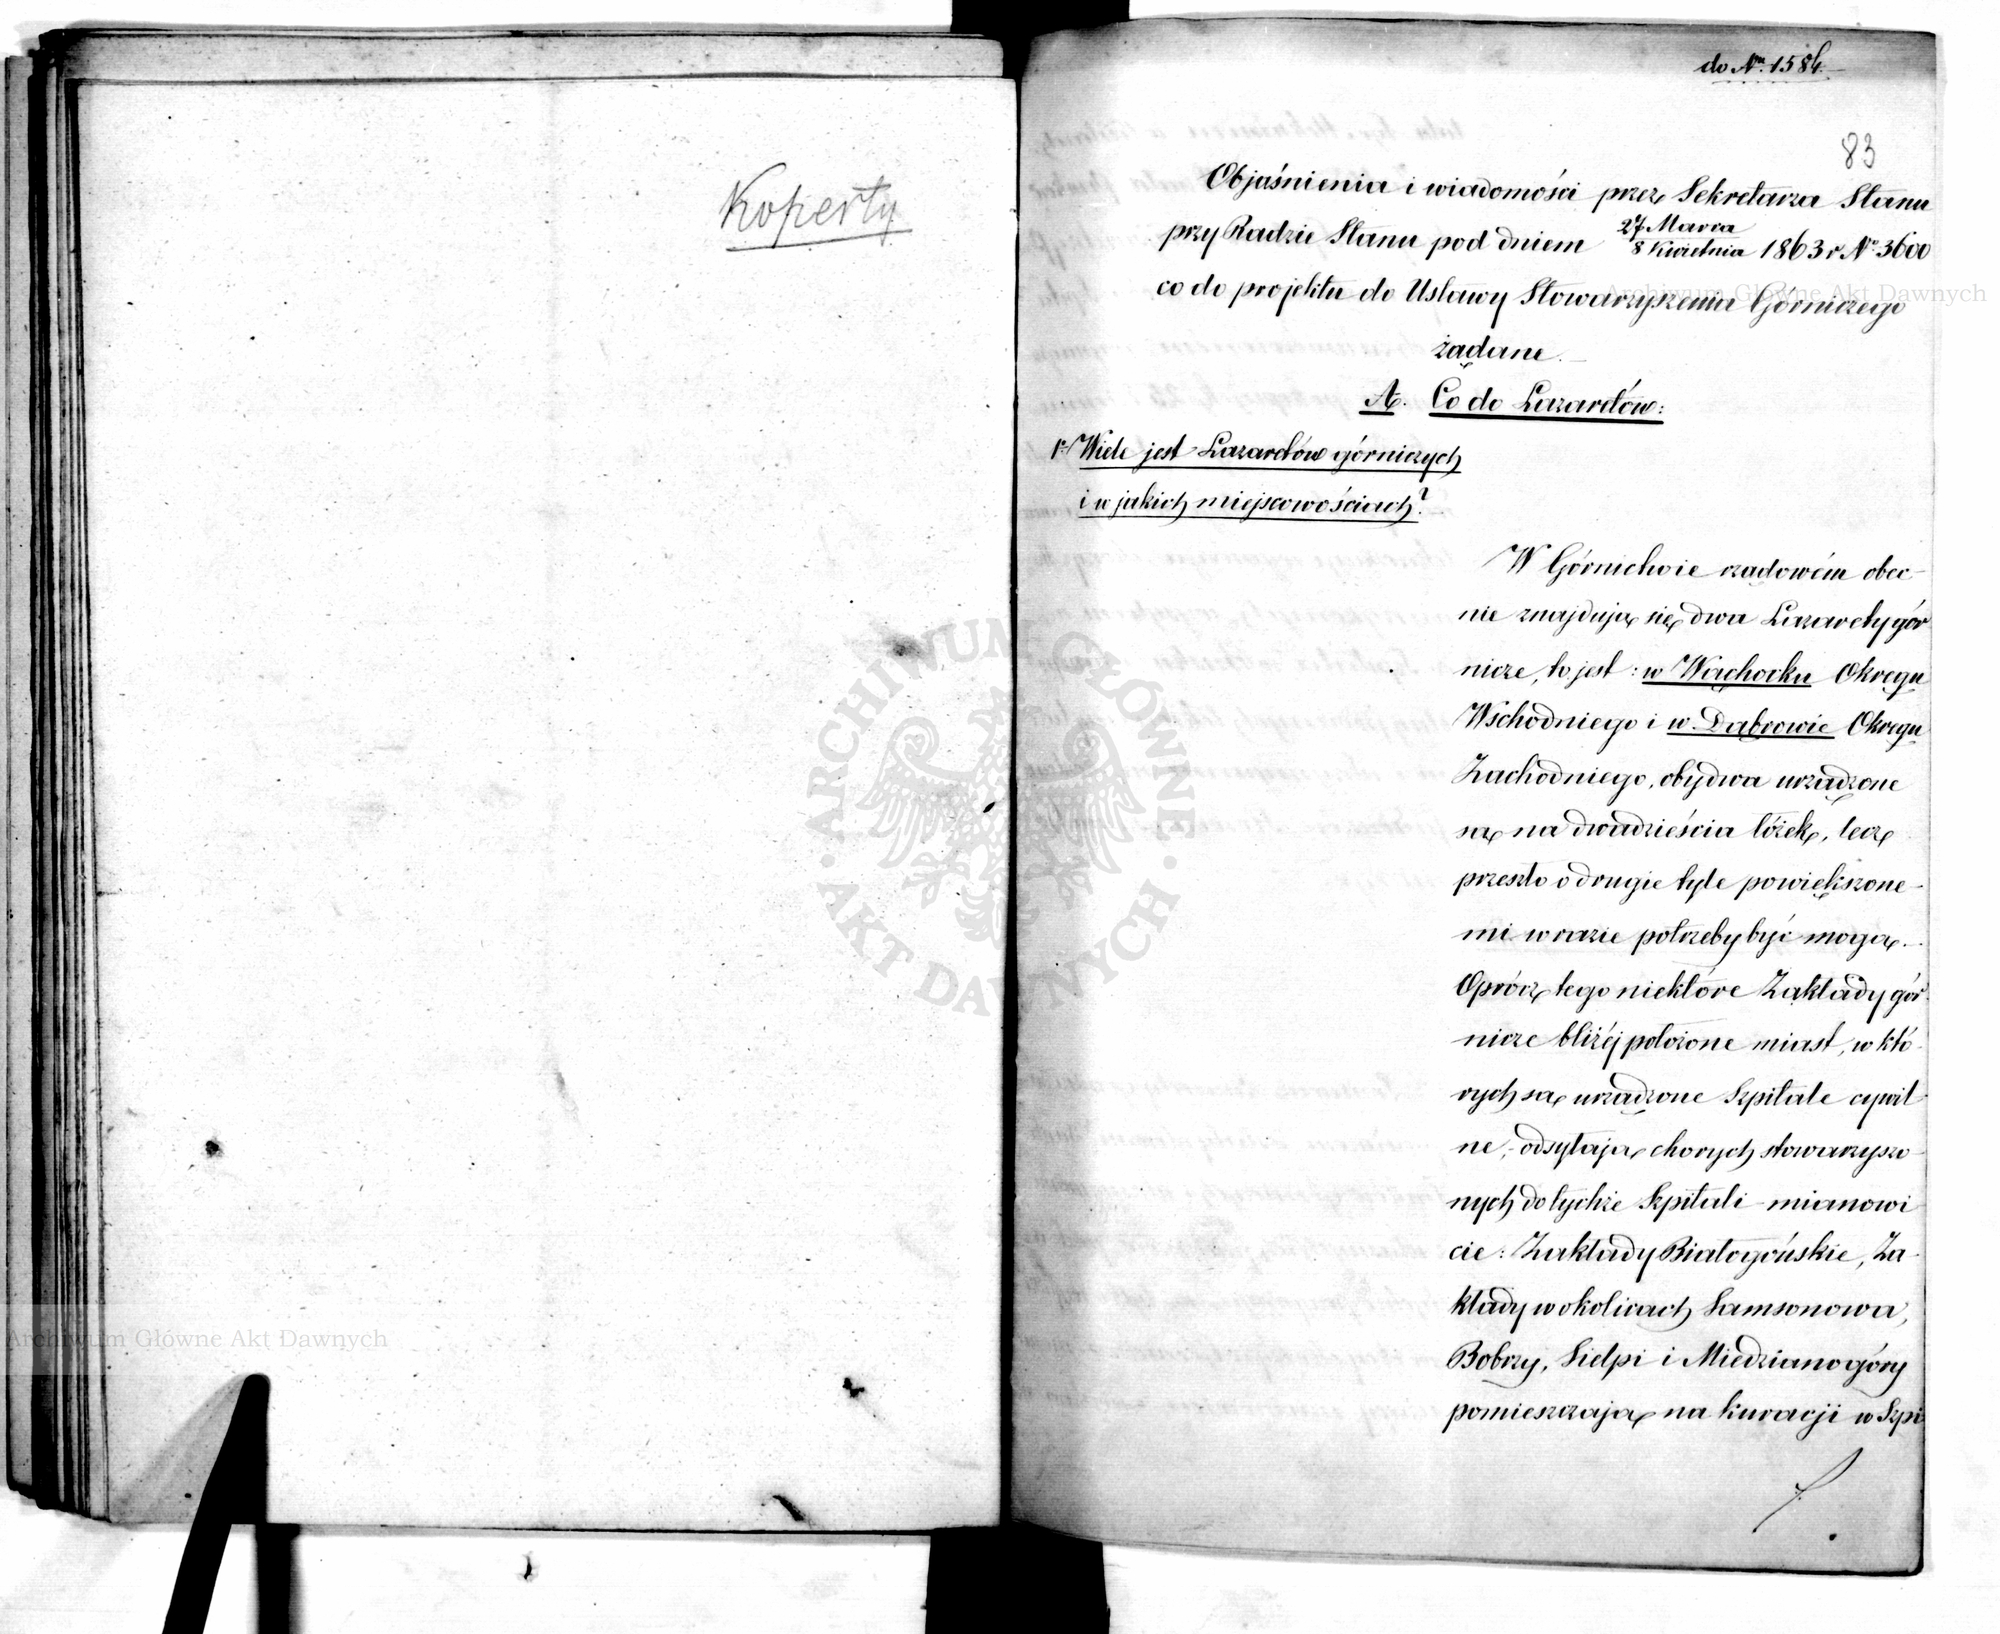 Koperty
do Nru 1584.
83
Objaśnienia i wiadomości przez Sekretarza Stanu
przy Radzie Stanu pod dniem 27 Marca / 8 Kwietnia 1863 r No 3600
co do projektu do Ustawy Stowarzyszenia Górniczego
żądane.
A. Co do Lazaretów:
1o Wiele jest Lazaretów górniczych
i w jakich miejscowościach?
W Górnictwie rządowém obec-
nie znajdują się dwa Lazarety gór
nicze, to jest: w Wąchocku Okręgu
Wschodniego i w Dąbrowie Okręgu
Zachodniego, obydwa urządzone
są na dwadzieścia łóżek, lecz
przeszło o drugie tyle powiększone-
mi w razie potrzeby być mogą.
Oprócz tego niektóre Zakłady gór
nicze bliżéj położone miast, w któ-
rych są urządzone Szpitale cywil
ne, odsyłają chorych stowarzyszo-
nych do tychże Szpitali - mianowi
cie: Zakłady Białogońskie, Za-
kłady w okolicach Samsonowa,
Bobrzy, Sielpi i Miedzianogóry
pomieszczają na kuracji w Szpi
Archiwum Główne Akt Dawnych
Archiwum Główne Akt Dawnych
ARCHIWUM GŁÓWNE
AKT DAWNYCH